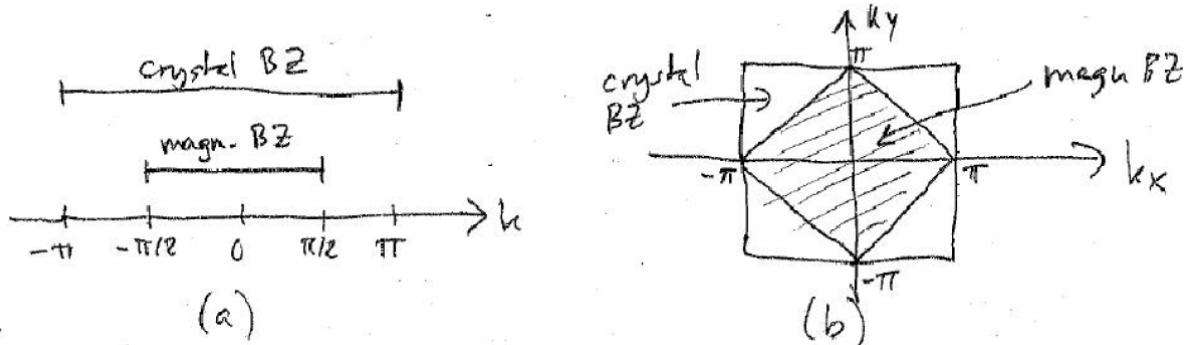 crystal BZ
magn. BZ
-π -π/2 0 π/2 π k
(a)
ky
π
crystal
BZ
magn BZ
-π π
kx
-π
(b)